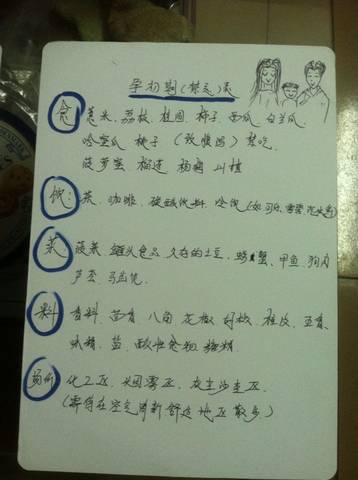 孕初期(禁忌)表
食 薏米、荔枝、桂圆、柿子、西瓜、白兰瓜、
哈密瓜、桃子(致慎固)禁吃、
菠萝蜜、榴莲、杨梅、山楂
饮: 茶、咖啡、碳酸饮料、冷饮(如可乐、雪碧、
菜 菠菜、罐头食品、久存的土豆、螃蟹、甲鱼、狗肉
芦荟、马齿苋、
料 香料、茴香、八角、花椒、桂皮、五香、
味精、盐、酸性食物、糖精
场所 化工区、头团雾区、灰尘沙尘区、
(需待在空气清新舒适地区散步)